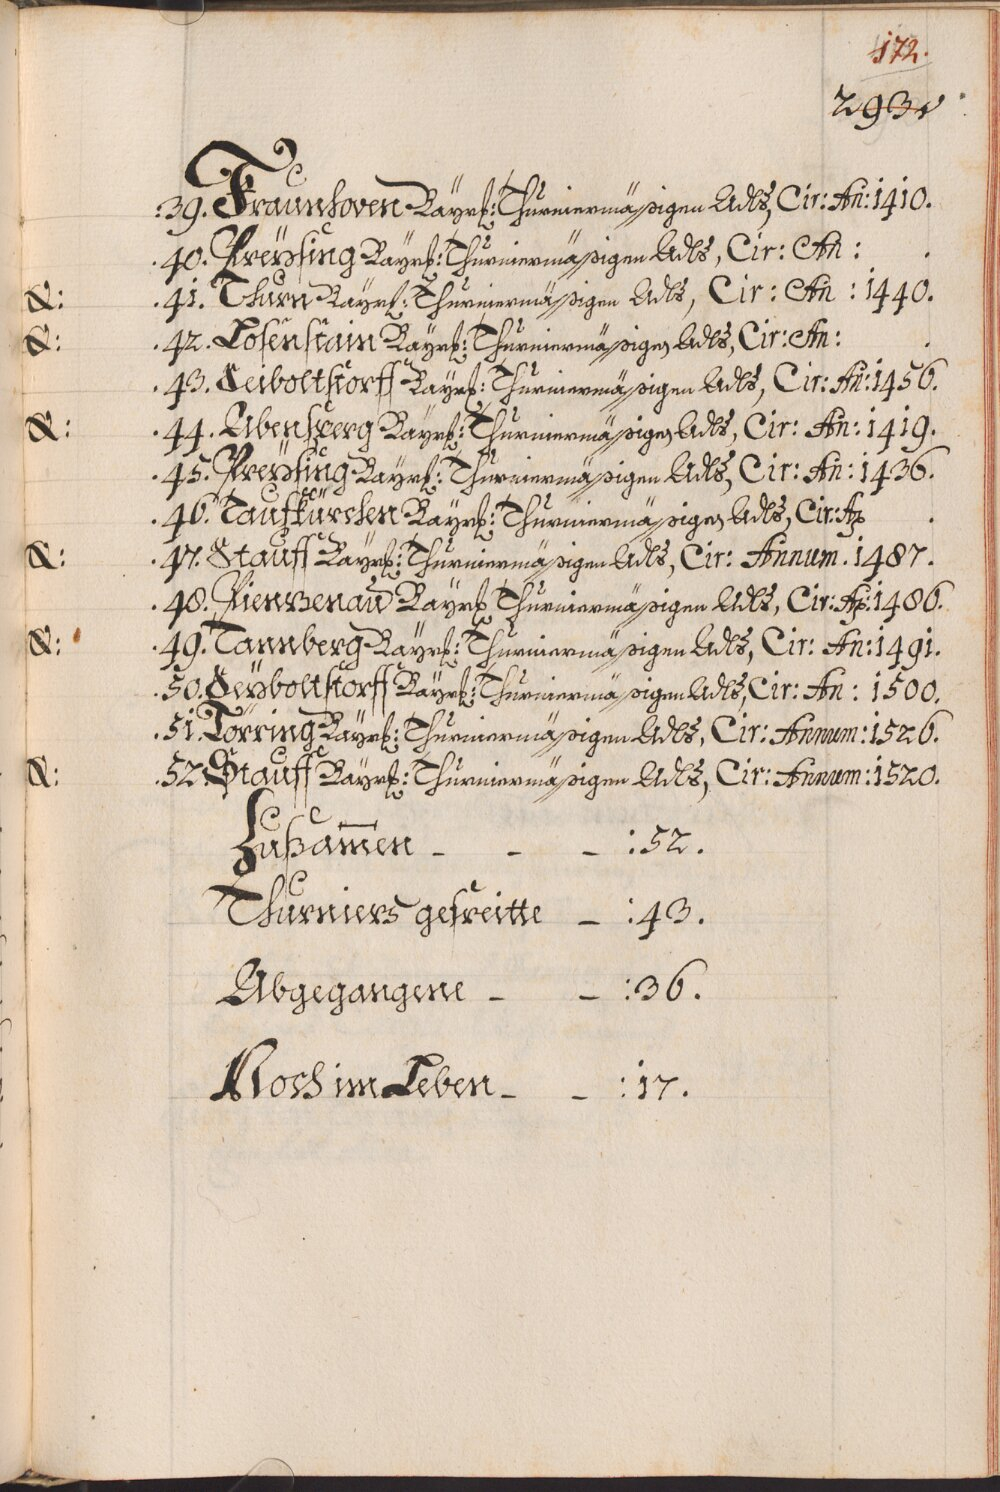 172.
293
:39. Fraunhoven Bayrß: Thurniermäßigen Adls, Cir: An: 1410.
.40. Preÿsing Bayrß: Thurniermäßigen Adls, Cir: An: .
&: .41. Thurn Bayrß: Thurniermäßigen Adls, Cir: An: 1440.
&: .42. Losenstain Bayrß: Thurniermäßigen Adls, Cir: An: .
.43. Leiboltstorff Bayrß: Thurniermäßigen Adls, Cir: An: 1456.
&: .44. Abensperg Bayrß: Thurniermäßigen Adls, Cir: An: 1419.
.45. Preÿsing Bayrß: Thurniermäßigen Adls, Cir: An: 1436.
.46. Taufkürchen Bayrß: Thurniermäßigen Adls, Cir: An .
&: .47. Stauff Bayrß: Thurniermäßigen Adls, Cir: Annum. 1487.
.48. Pienzenau Bayrß Thurniermäßigen Adls, Cir: An: 1486.
&: .49. Tannberg Bayrß: Thurniermäßigen Adls, Cir: An: 1491.
.50. Leÿboltstorff Bayrß: Thurniermäßigen Adls, Cir: An: 1500.
.51. Törring Bayrß: Thurniermäßigen Adls, Cir: Annum: 1526.
&: .52. Stauff Bayrß: Thurniermäßigen Adls, Cir: Annum: 1520.
Zußam̄en - - - :52.
Thurniers gefreitte - :43.
Abgegangene - - :36.
Noch im Leben - - :17.